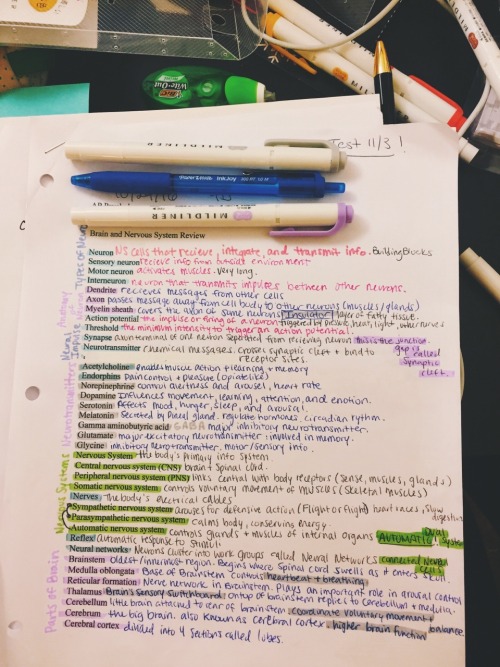 BIC
Wite-Out
MILDLINER
Test 11/3 !
MILDLINER
PAPERMATE InkJoy
MILDLINER
Brain and Nervous System Review
Neuron NS cells that recieve, integrate, and transmit info. Building Blocks
Sensory neuron recieve info from outside environment
Motor neuron activates muscles. Very long.
Interneuron neuron that transmits impulses between other neurons.
Dendrite recieves messages from other cells
Axon passes message away from cell body to other neurons (muscles/glands)
Myelin sheath covers the axon of some neurons Insulator Major of fatty tissue.
Action potential the impulse or firing of a neuron triggered by pressure, heat, light, other nerves
Threshold the minimum intensity to trigger an action potential.
Synapse axon terminals of one neuron separated from recieving neuron this is the junction.
gap is called synaptic cleft
Neurotransmitter chemical messages. cross synaptic cleft + bind to
receptor sites.
Acetylcholine enables muscle action + learning + memory
Endorphins pain control + pleasure (opiate like)
Norepinephrine controls alertness and arousal, heart rate
Dopamine Influences movement, learning, attention, and emotion.
Serotonin Affects mood, hunger, sleep, and arousal.
Melatonin Secreted by Pineal gland. regulate hormones, circadian rythm.
Gamma aminobutyric acid GABA major inhibitory neurotransmitter.
Glutamate major excitatory neurotransmitter : involved in memory.
Glycine inhibitory neurotransmitter. motor/sensory info.
Nervous System the body's primary info system
Central nervous system (CNS) brain + spinal cord.
Peripheral nervous system (PNS) links central with body receptors (sense, muscles, glands)
Somatic nervous system controls voluntary movement of muscles (skeletal muscles)
Nerves The body's electrical cables
Sympathetic nervous system arouses for defensive action (Flight or Fight) heart races, slow digestion
Parasympathetic nervous system calms body, conserving energy.
Automatic nervous system controls glands + muscles of internal organs AUTOMATIC Dual System
Reflex automatic response to stimuli
Neural networks Neurons cluster into work groups called Neural Networks connected Neural cells
Brainstem oldest/innermost region. Begins where spinal cord swells as it enters skull.
Medulla oblongata Base of Brainstem controls heartbeat + breathing
Reticular formation Nerve network in Brainstem. Plays an important role in arousal control
Thalamus Brain's sensory switchboard on top of brainstem replies to cerebellum + medulla.
Cerebellum little brain attached to rear of brainstem. coordinate voluntary movement + balance.
Cerebrum the big brain. also known as cerebral cortex. higher brain function
Cerebral cortex divided into 4 sections called lobes.
Types of Neurons
Neural Impulse
Neurotransmitters
Nervous Systems
Parts of Brain